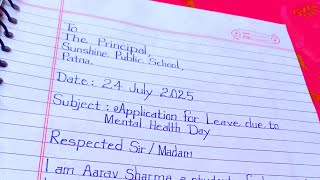 To
The Principal,
Sunshine Public School,
Patna.
Date: 24 July 2025
Subject: Application for Leave due to
Mental Health Day
Respected Sir/Madam
I am Aarav Sharma a student